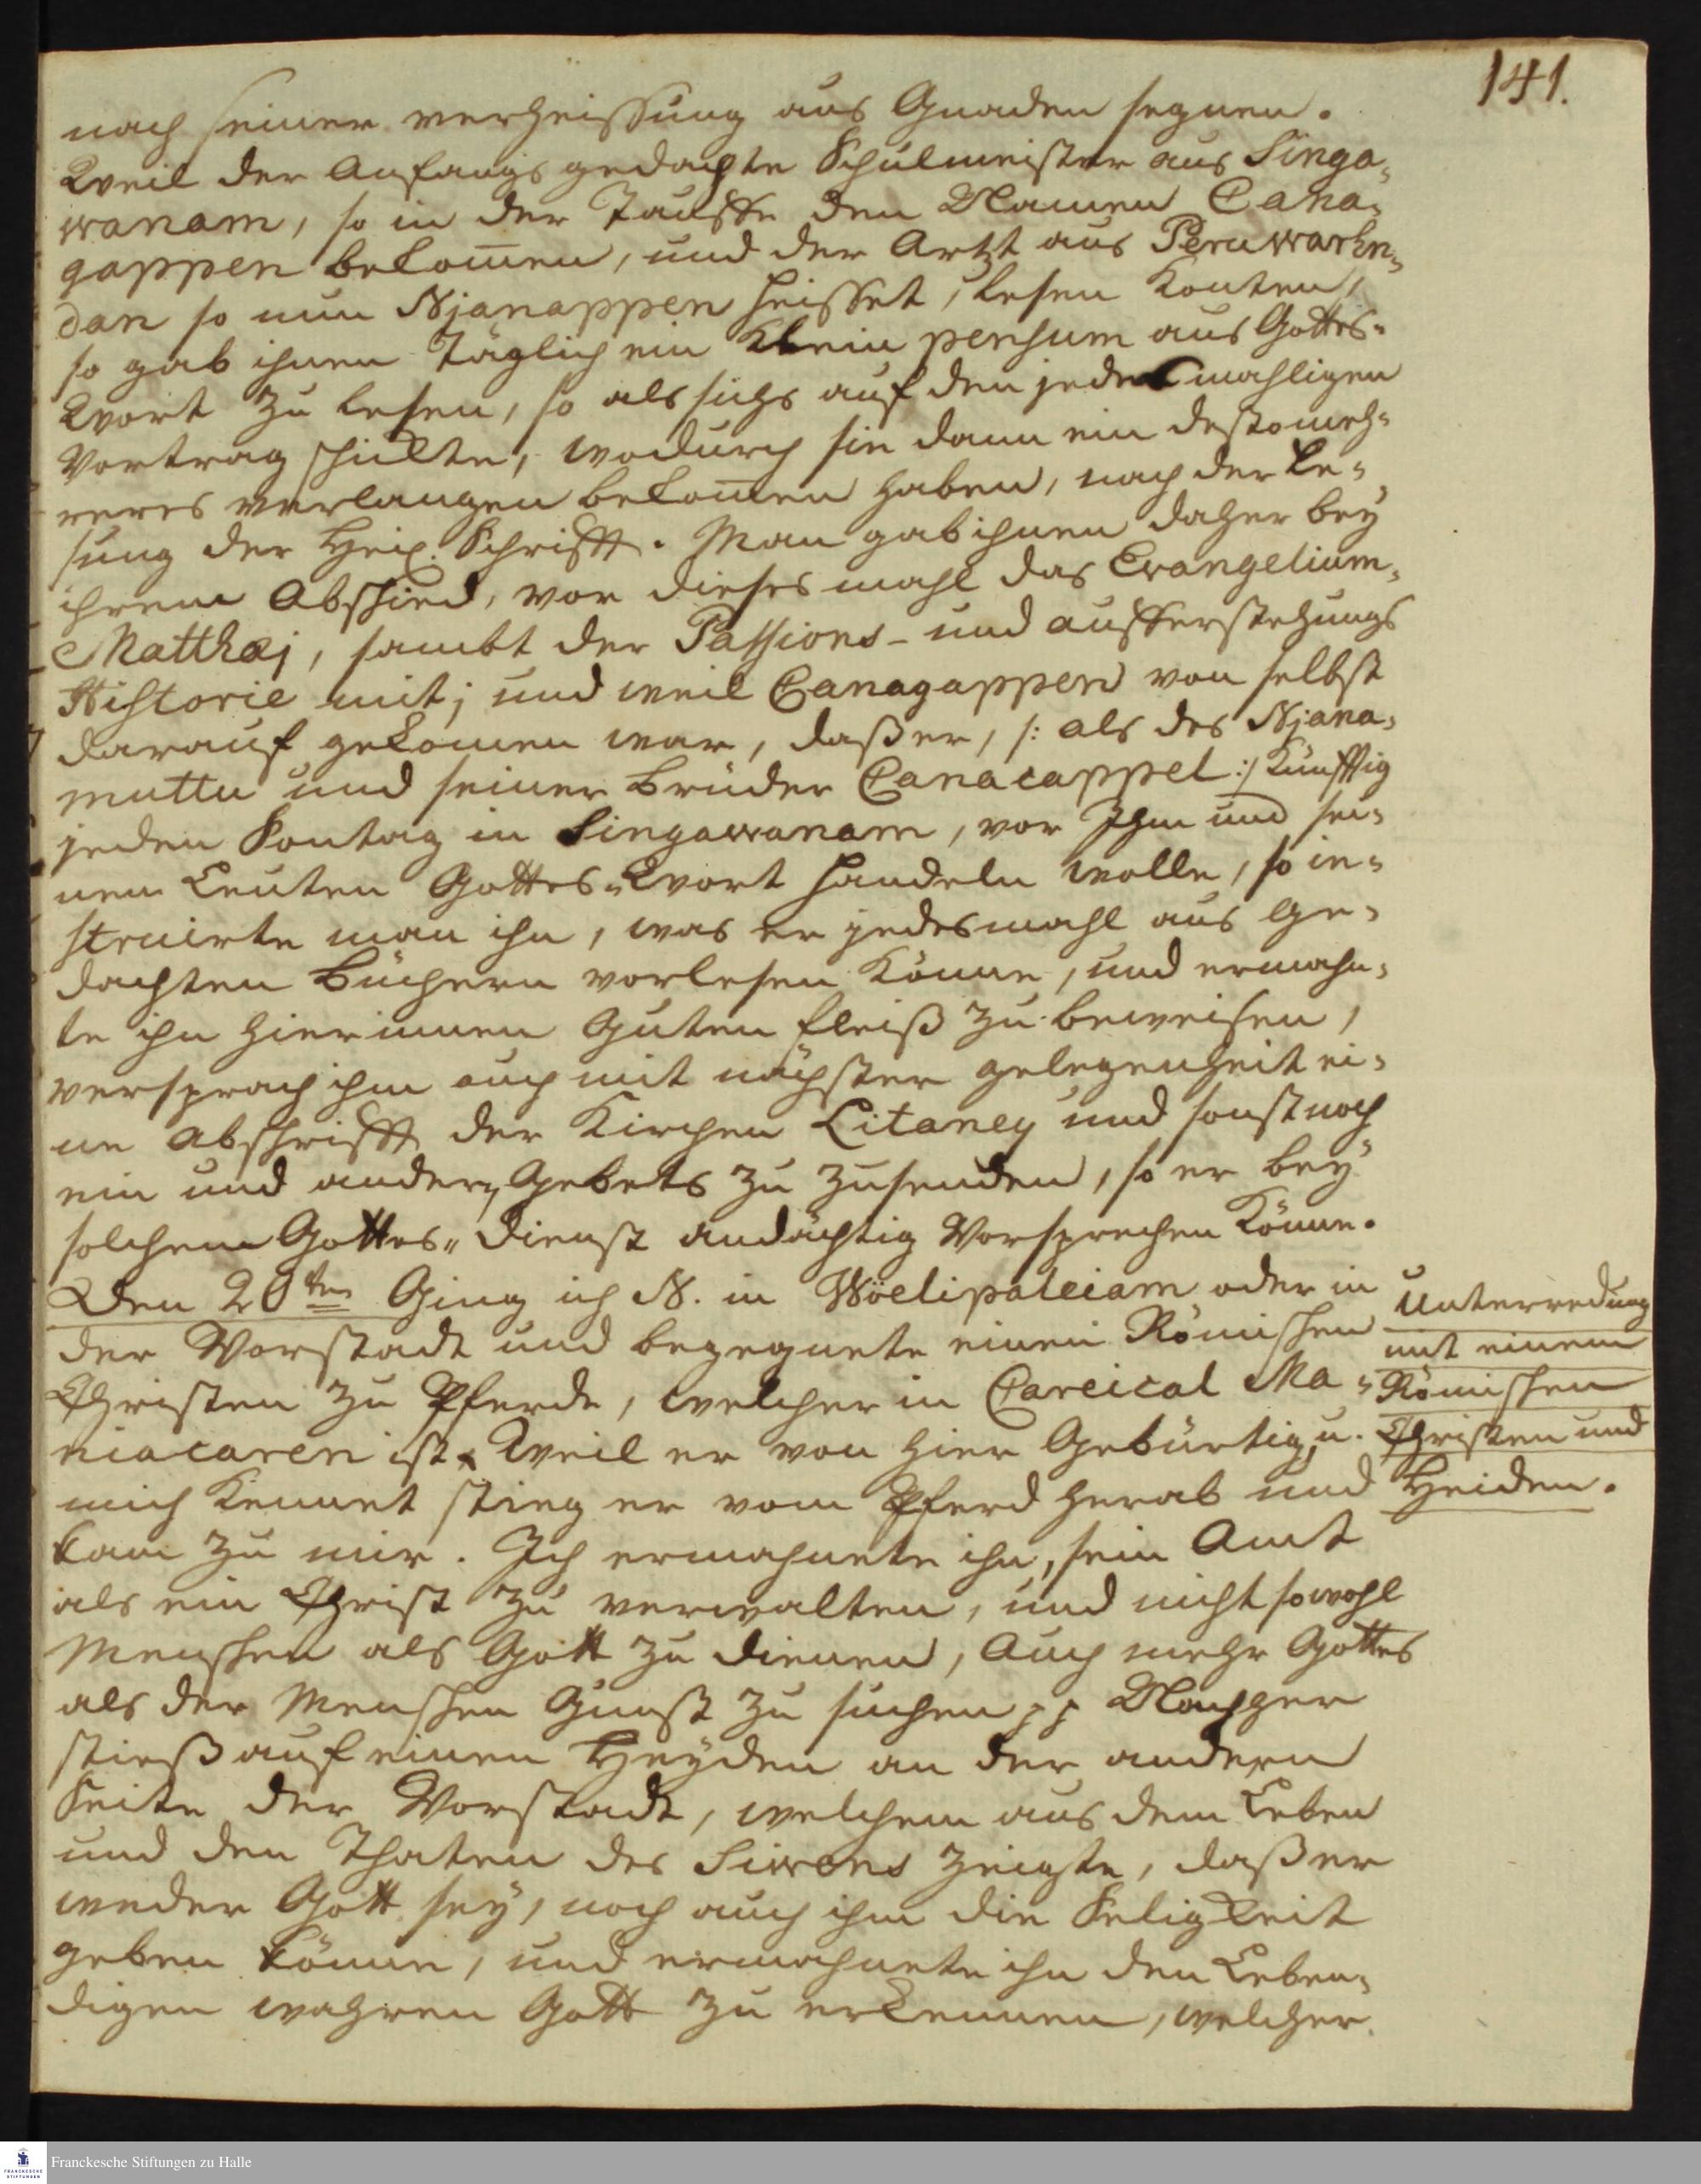 141.
nach seiner verheissung aus Gnaden segnen.
Weil der Anfangs gedachte Schulmeister aus Singa„
wanam, so in der Tauffe den Namen Cana„
gappen bekom̅en, und der Artzt aus Peruwarhn„
dan so nun Njanappen heisset, lesen konten,
so gab ihnen Täglich ein klein pensum aus Gottes„
Wort zu lesen, so als sichs auf den jedesmahligen
Vortrag schickte, wodurch sie dann ein destomeh„
reres verlangen bekom̅en haben, nach der Le„
sung der Heil. Schrifft. Man gab ihnen daher bey
ihrem Abschied, vor dieses mahl das Evangelium„
Matthæj, sambt der Passions- und aufferstehungs
Historie mit; und weil Canagappen von selbst
darauf gekomen war, daß er, /: als des Njana„
muttu und seiner Brüder Canacappel :/ künfftig
jeden Sontag in Singawanam, vor Ihm und sei„
nen Leuten Gottes„Wort handeln wolle, so in„
struirte man ihn, was er jedesmahl aus ge„
dachten Büchern vorlesen könne, und ermahn„
te ihn hierinnen Guten fleiß zu beweisen,
versprach ihm auch mit nächster gelegenheit ei„
ne Abschrifft der Kirchen Litaney und sonst noch
ein und andern Gebets zu zusenden, so er bey
solchem Gottes„dienst andächtig Vorsprechen könne.
Den 20ten Ging ich N. in Wöelipaleiam oder in
der Vorstadt und begegnete einen Römischen
Christen zu Pferde, welcher in Careical Ma„
niacaren ist. Weil er von hier Gebürtig, u.
mich kennet stieg er vom Pferd herab und
kam zu mir. Ich ermahnete ihn, sein Amt
als ein Christ zu verwalten, und nicht sowohl
Menschen als Gott zu dienen, Auch mehr Gottes
als der Menschen Gunst zu suchen pp Nachher
stieß auf einen Heyden an der andern
Seite der Vorstadt, welchem aus dem Leben
und den Thaten des Siwens zeigte, daß er
weder Gott sey, noch auch ihm die Seligkeit
geben könne, und ermahnete ihn den Leben„
digen wahren Gott zu erkennen, welcher
Unterredung
mit einem
Römischen
Christen und
Heiden.
Franckesche Stiftungen zu Halle
FRANCKESCHE
STIFTUNGEN